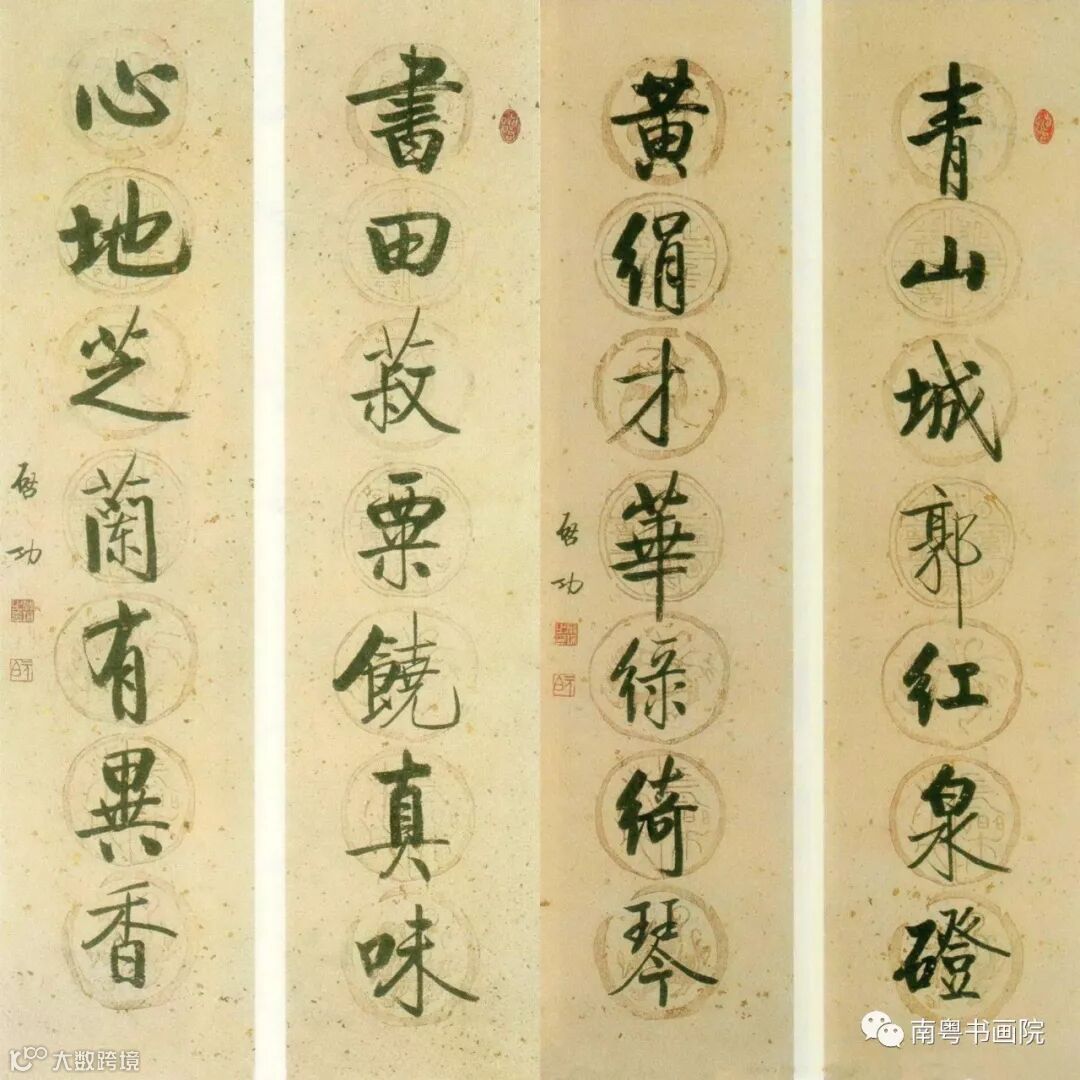 青山城郭红泉磴
黄绢才華绿綺琴
啓功
書田菽粟饒真味
心地芝蘭有異香
啓功
南粤书画院
大数跨境